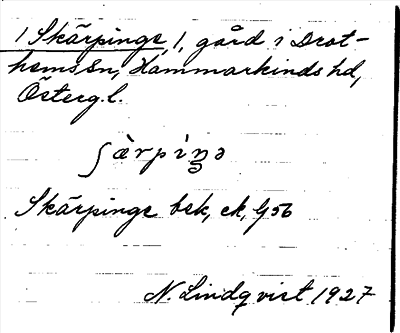 1 Skärpinge, 1, gård i Drot-
hems sn, Hammarkinds hd,
Österg.l.
ʃæ̀rpìŋə
Skärpinge bsk, ek, G56
N. Lindqvist 1927